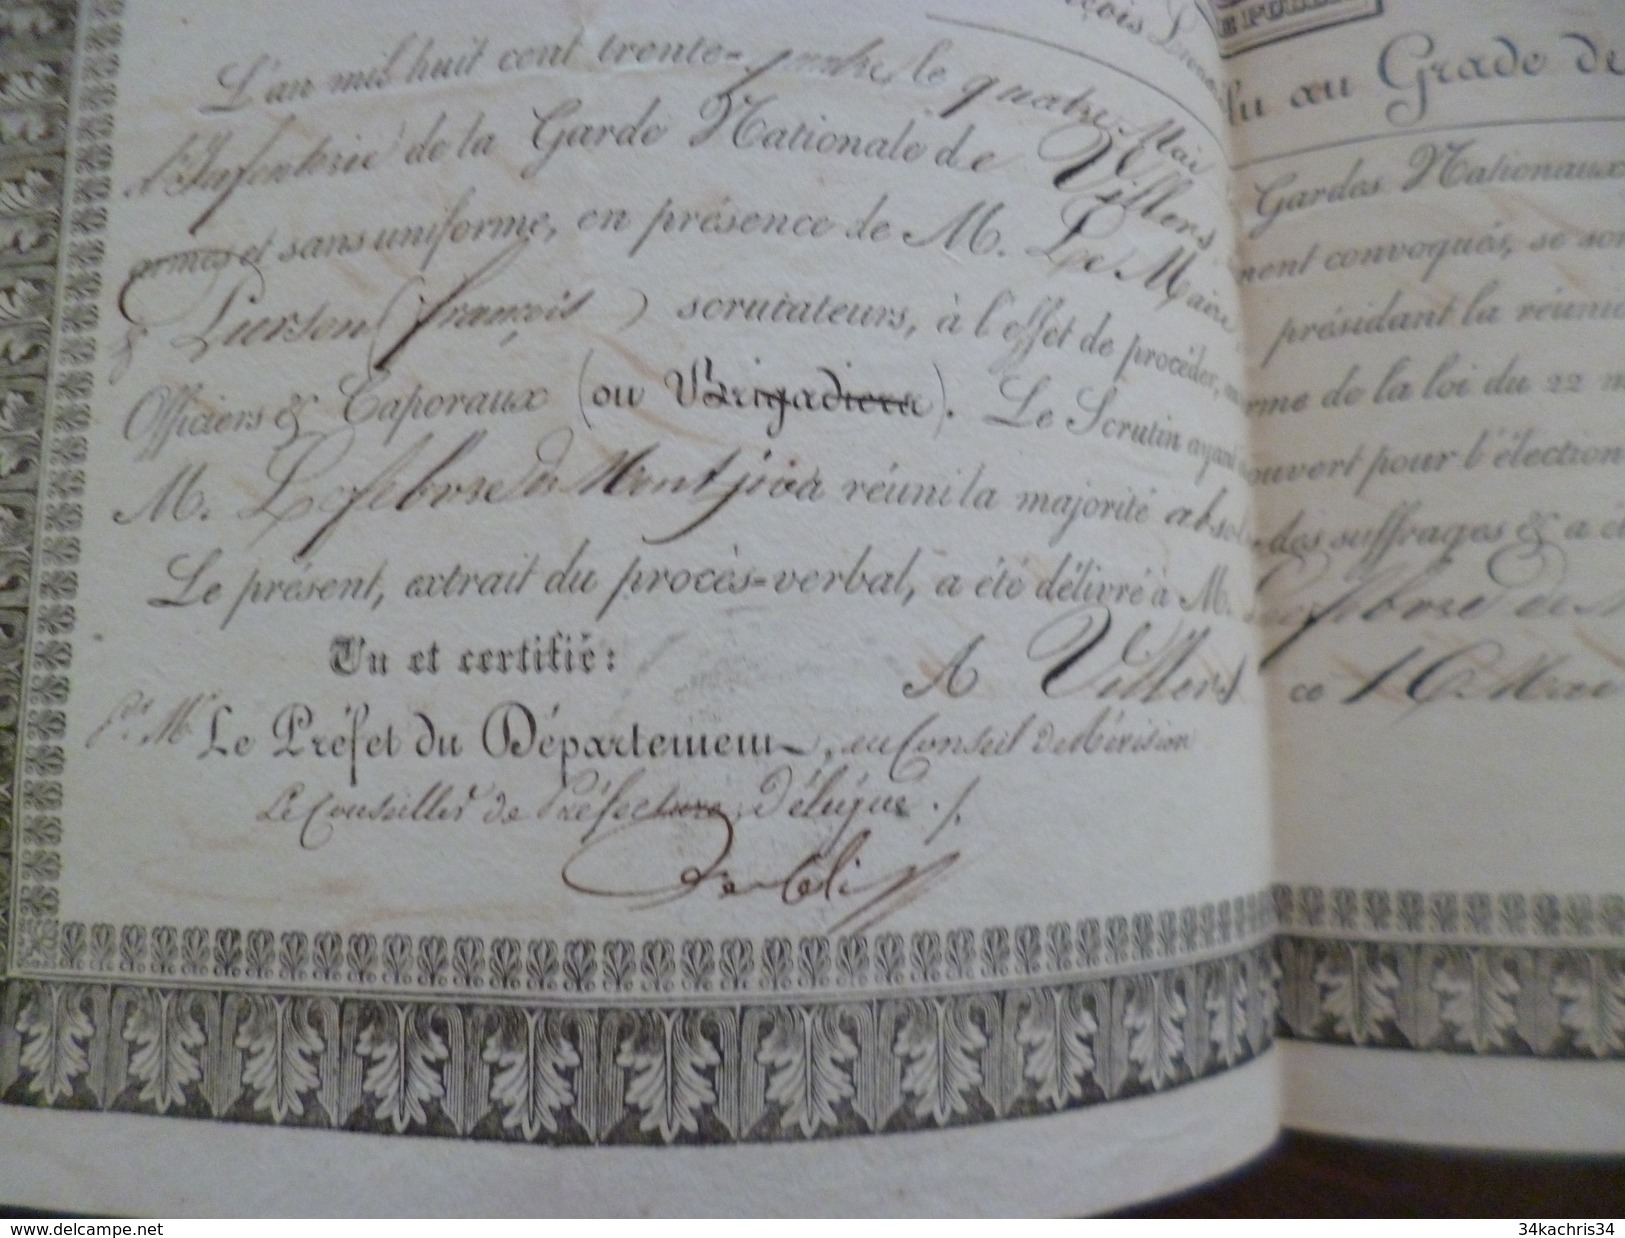 ORDRE PUBLIC
élu au Grade de
L'an mil huit cent trente-quatre le quatre Mai
d'Infanterie de la Garde Nationale de Villers Gardes Nationaux
armes et sans uniforme, en présence de M. Le Maire ment convoqués, se son
& Lurson (françois) scrutateurs, à l'effet de procéder, présidant la réunio
Officiers & Caporaux (ou Brigadiers). Le Scrutin ayant rme de la loi du 22 m
M. Lefebvre de Montjoie a réuni la majorité absol ouvert pour l'élection
Le présent, extrait du procès-verbal, a été délivré à M. des suffrages & a é
Vu et certifié: Lefebvre de M
A Villers ce 16 Mai
pr. Mr Le Préfet du Département, au Conseil de Révision
Le Conseiller de Préfecture, Délégué ./.
www.delcampe.net
34kachris34